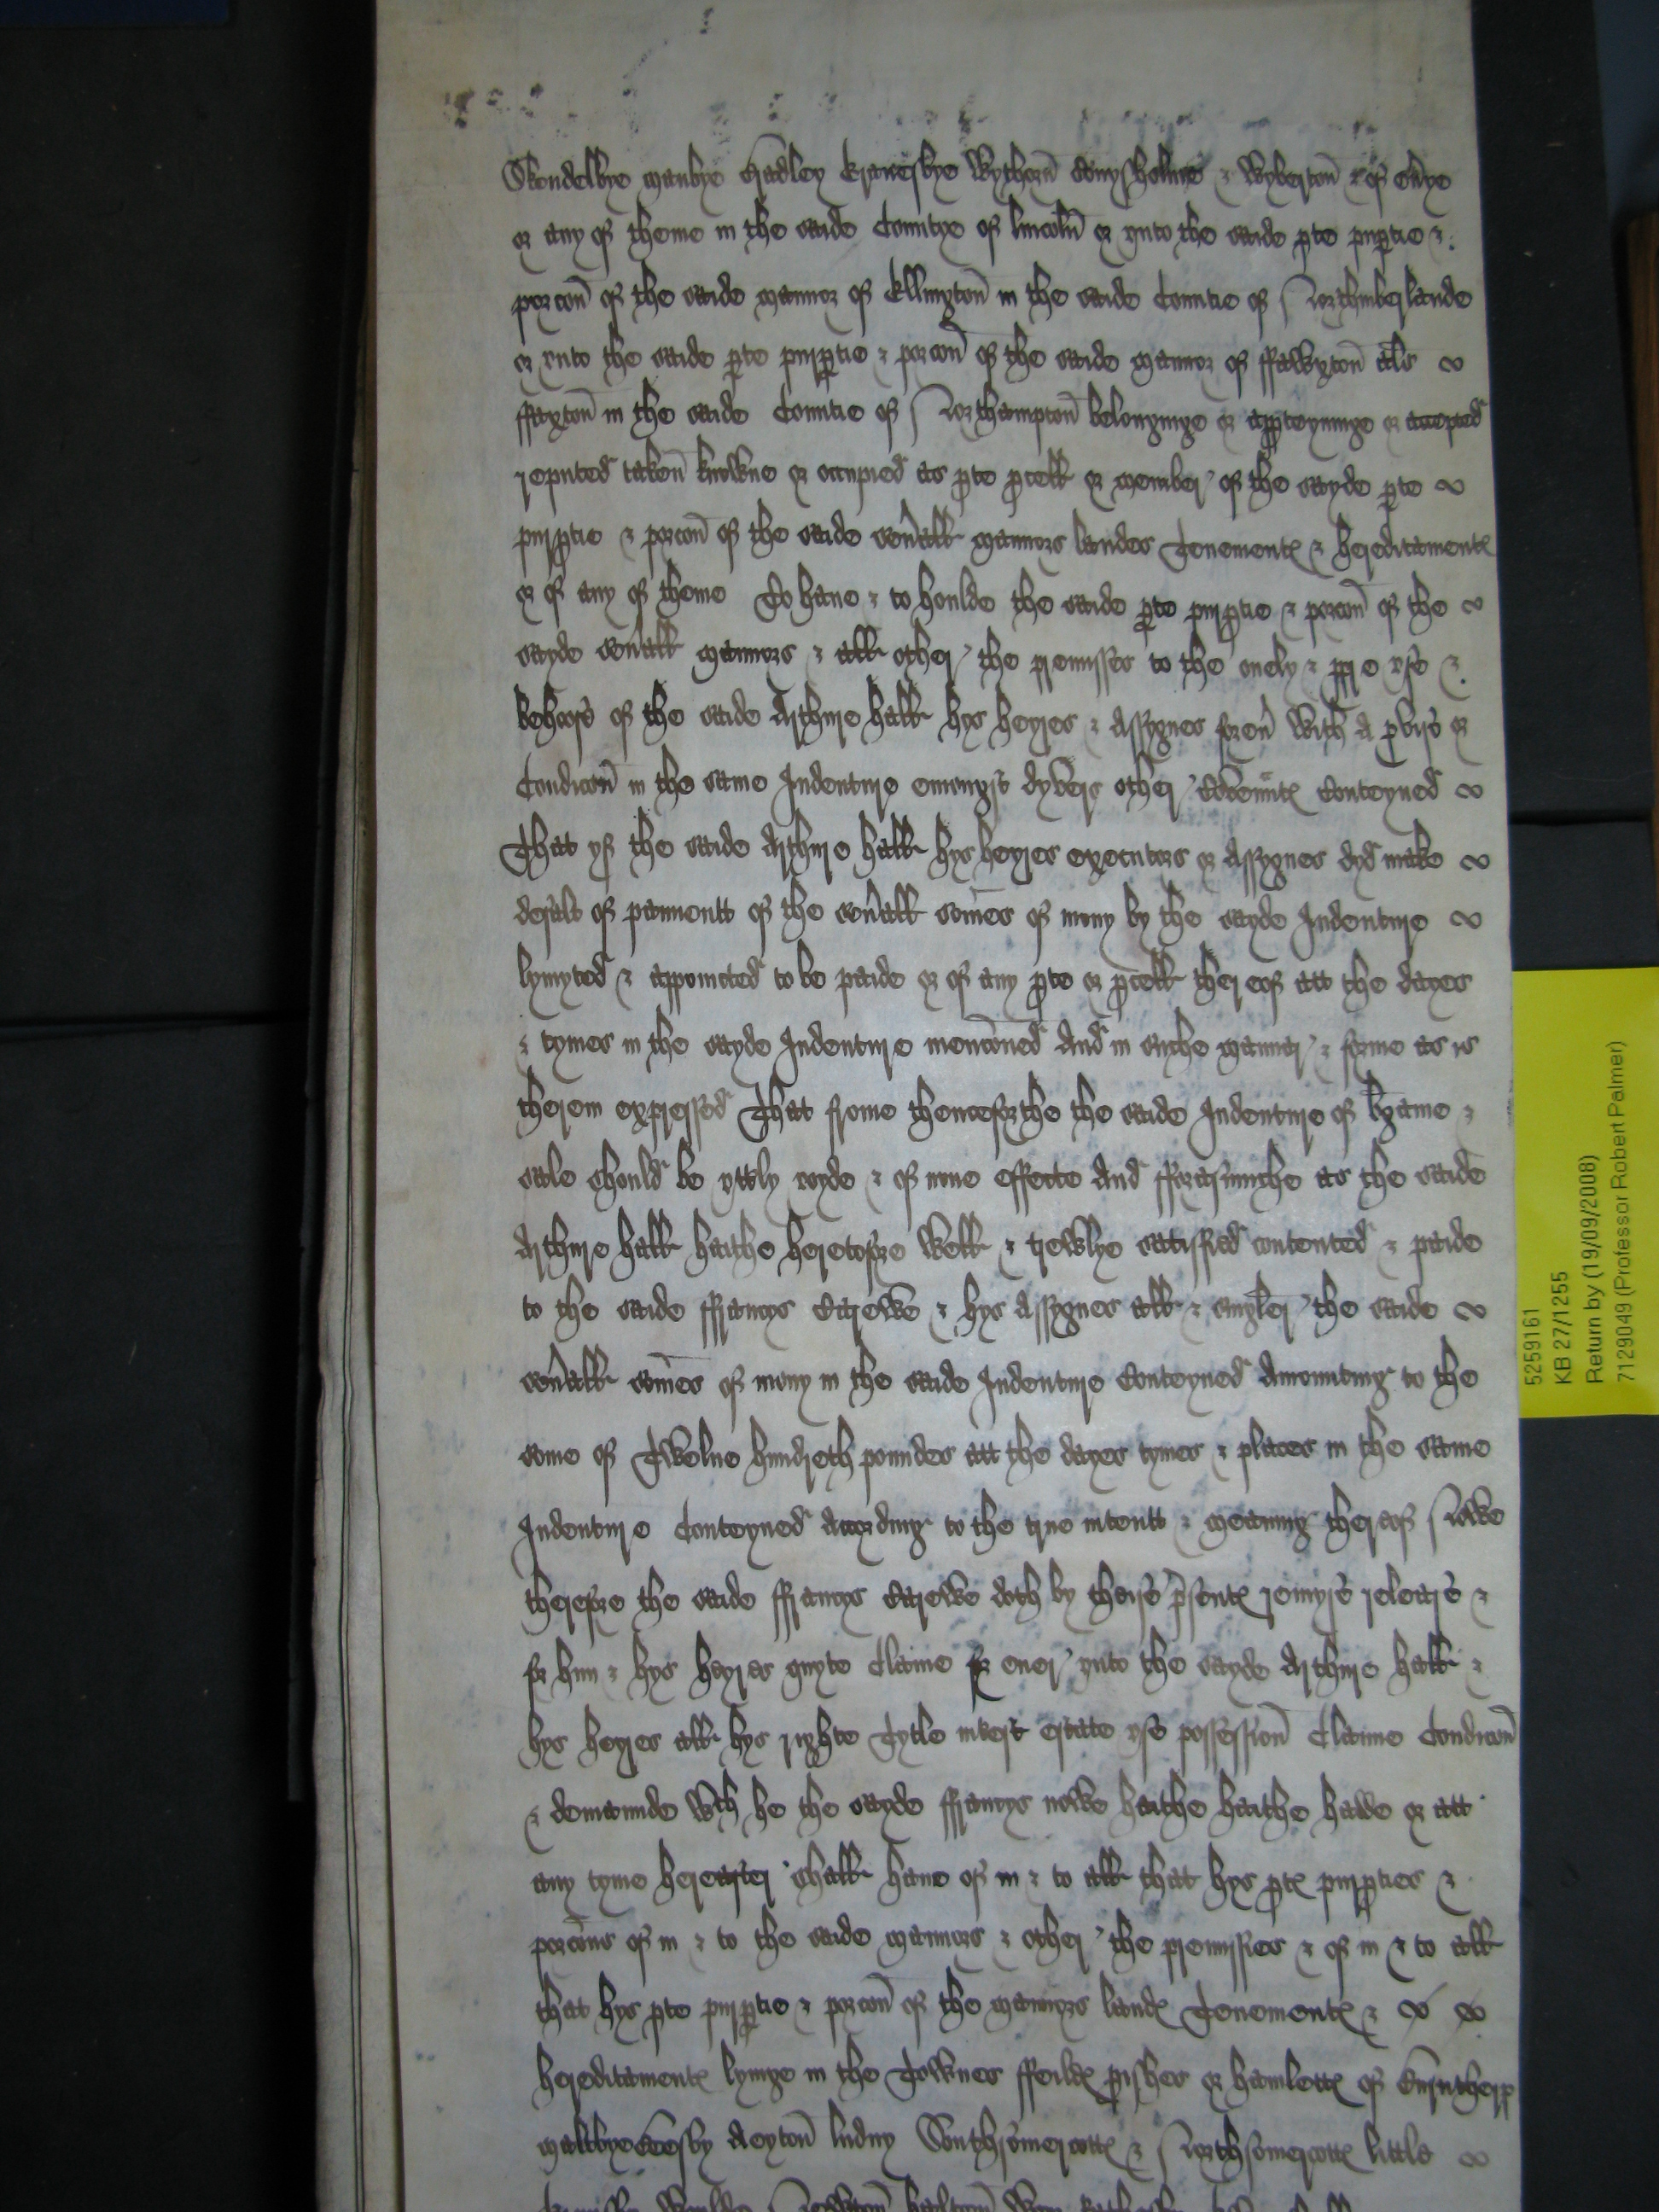 Skendelbye Manbye Hadley Wythern & Wyberton & of eu'ye
or any of theme in the saide Countye of lincoln or vnto the saide p'te purp'tie &
porcon of the saide Mannor of Ellington in the saide Countie of Northumberlande
or vnto the saide p'te purp'tie & porcon of the saide Mannor of ffawxton als
ffaxton in the saide Countie of Northampton belonginge or app'teyninge or accepted
reputed taken knowne or occupied as p'te p'cell or member of the sayde p'te
purp'tie & porcon of the saideseu'all Mannors landes Tenementes & hereditamentes
or of any of theme To haue & to houlde the saide p'te purp'tie & porcon of the
sayde seu'all Mannors & all other the premisses to the onely & prop're vse &
behoofe of the saide Arthure hall hys heyres & Assygnes foreu' With A p'viso or
Condicon in the same Indenture emongst dyvers other Coven'ntes Conteyned
That yf the saide Arthure hall hys heyres executors or Assygnes dyd make
defalt of paimentt of the seu'all somes of mony by the sayde Indenture
lymyted & appoincted to be paide or of any p'te or p'cell thereof att the dayes
& tymes in the sayde Indenture mencioned And in suche manner & forme as is
therein expressed That frome thenceforthe the saide Indenture of bargaine &
sale should be vtt'ly voyde & of none effecte And fforasmuche as the saide
Arthure hall hathe heretofore Well & trewlye satisfied contented & paide
to the saide ffrancys Ayscowe & hys Assygnes all & singler the saide
seu'all somes of mony in the saide Indenture Conteyned Amounting to the
some of Twelue hundreth poundes att the dayes tymes & places in the same
Indenture Conteyned According to the true intentt & Meaning thereof Nowe
therefore the saide ffrancys doth by theise p'sentes remyse release &
for him & hys heyres quyte Clame for euer vnto the sayde Arthure hall &
hys heyres all hys righte Tytle int'est estate vse possession Clame Condicon
& demaunde Wch he the sayde ffrancys nowe hathe hathe hadde or att
any tyme hereafter shall haue of in & to all that hys p'tes purp'ties &
porcons of in & to the saide Mannors & other the premisses & of in & to all
that hys p'te purp'tie & porcon of the Mannors landes Tenementes &
hereditamentes lyinge in the Townes ffeildes p'ishes or hamlettes of
Maltbye Aeyton ludny Southsomercottes & Northsomercottes little
5259161
KB 27/1255
Return by (19/09/2008)
7129049 (Professor Robert Palmer)